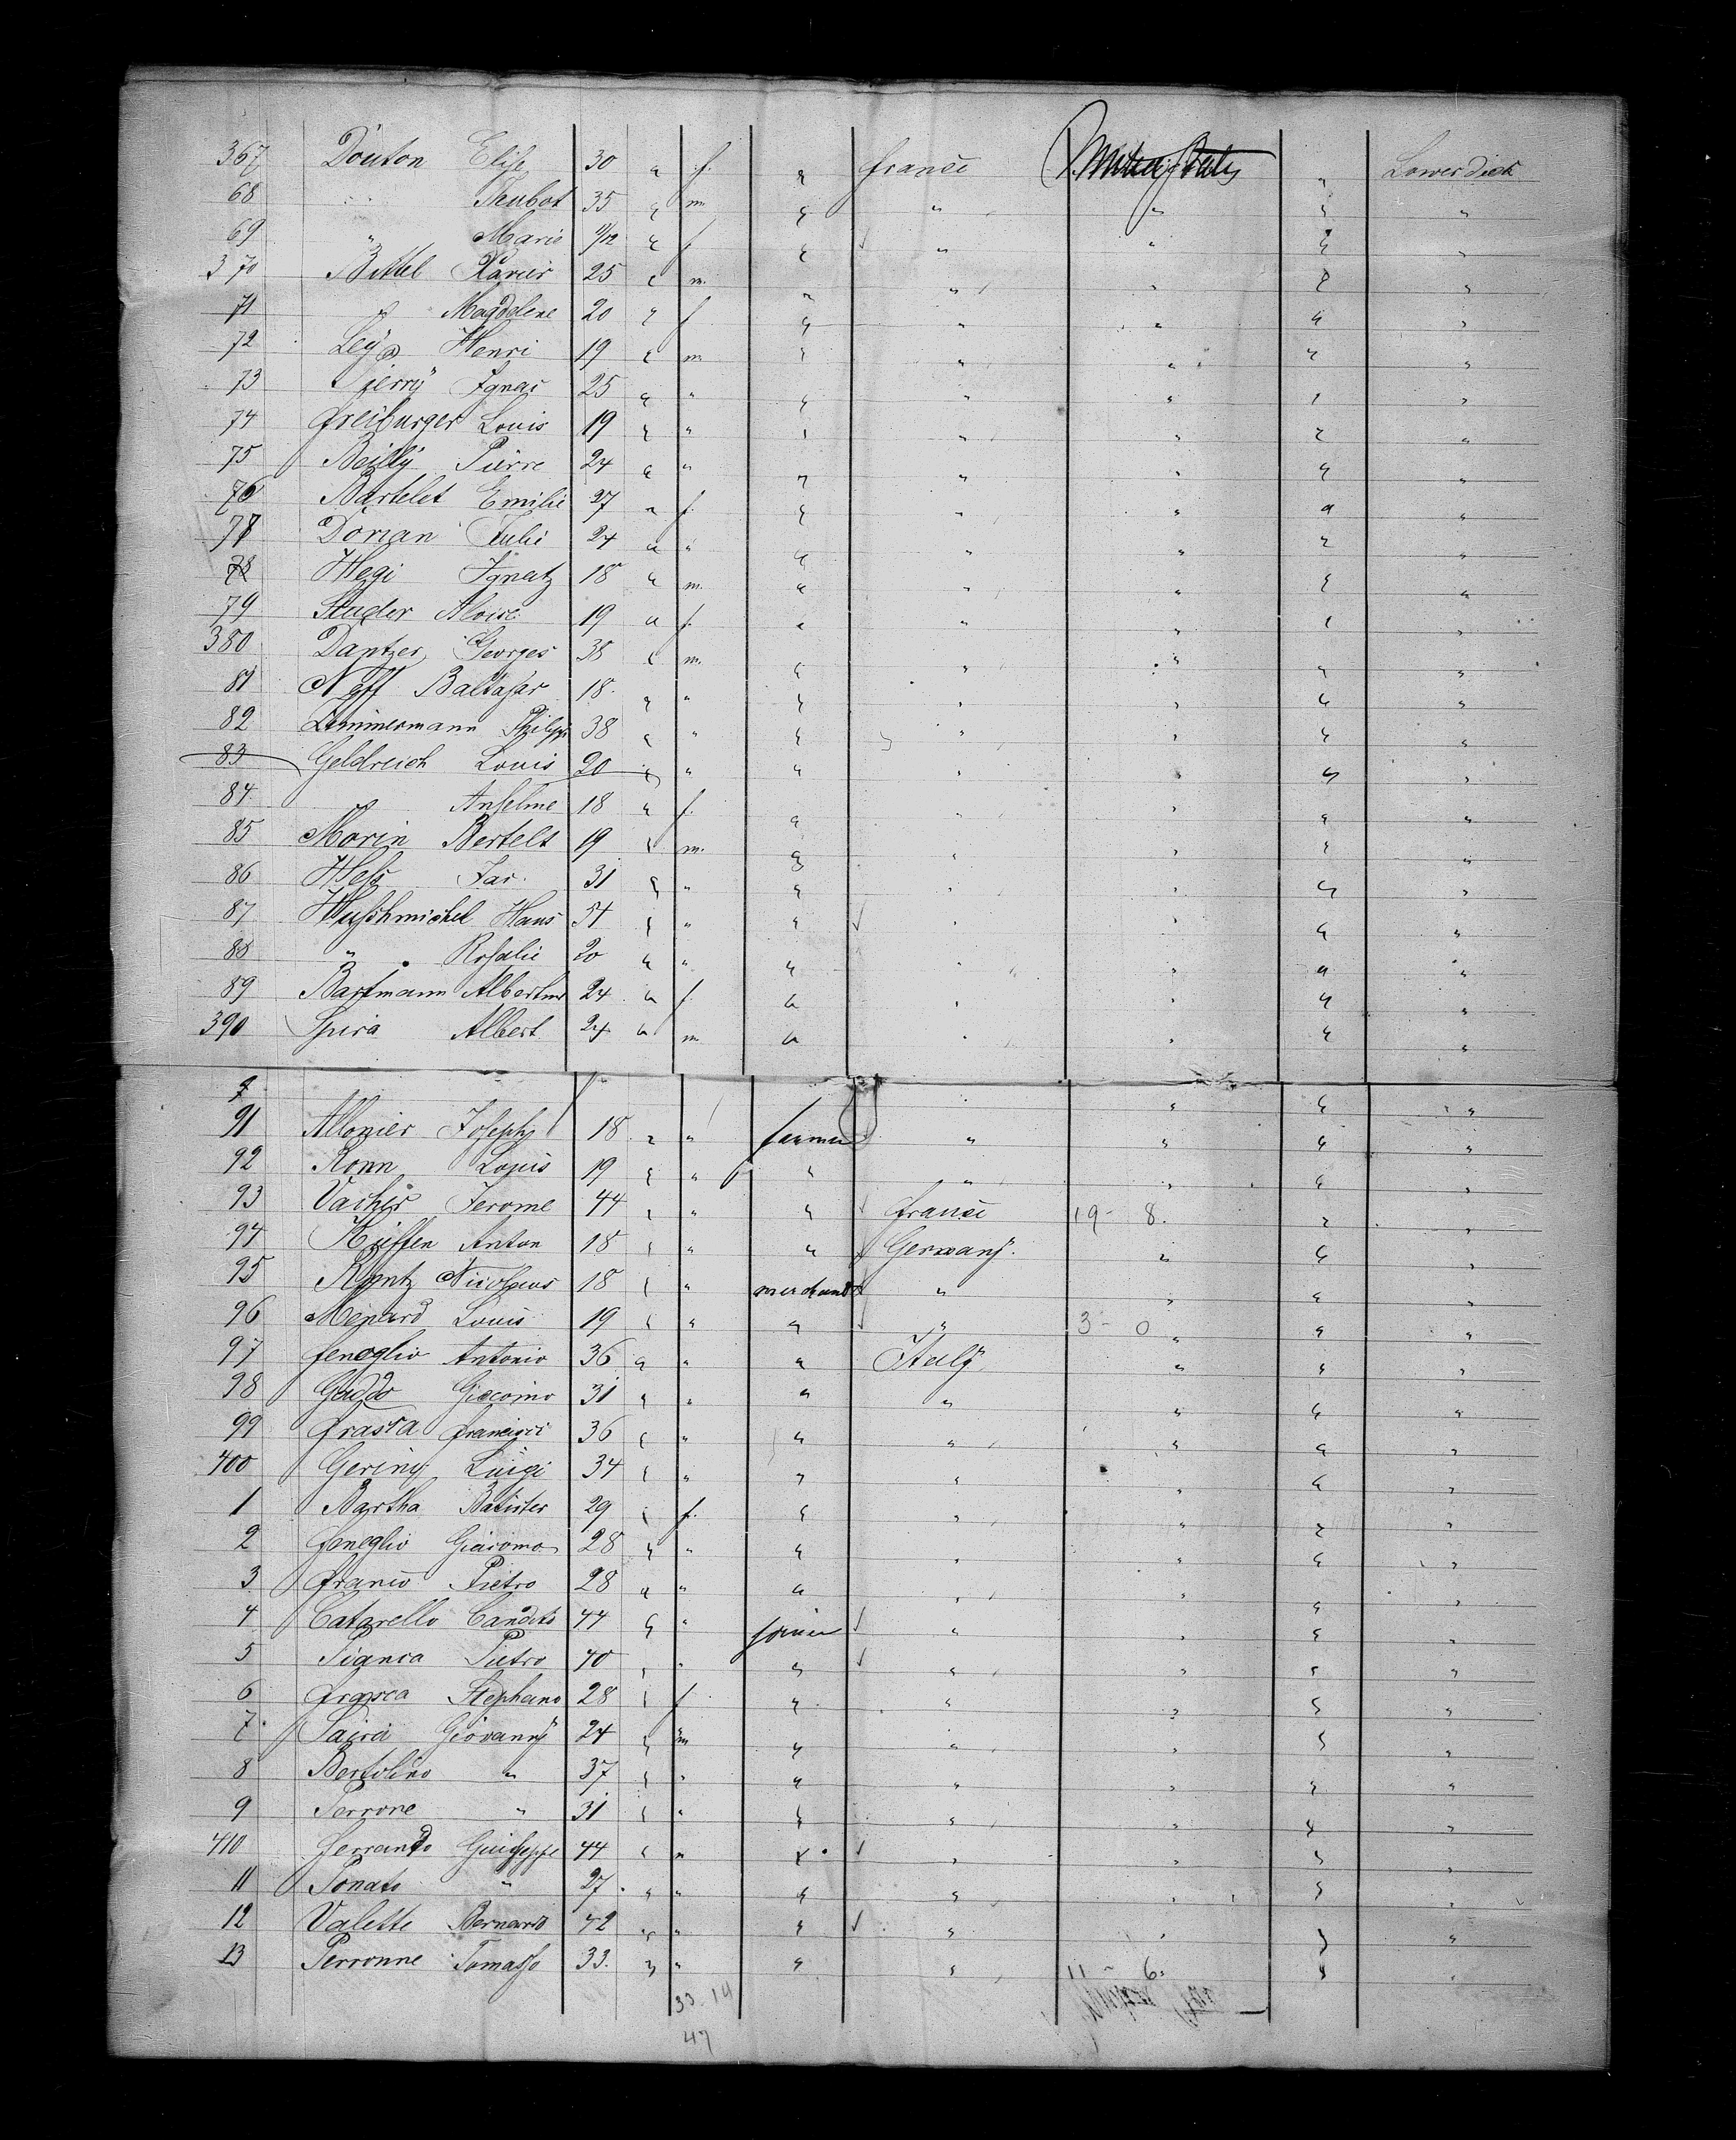 367 Douton Elise 30 " f. " france United States " Lower deck
68 " 35 " m " " " " "
69 " Marie 11/12 " f " " " " "
370 Bittel Xavier 25 " m. " " " " "
71 " Magdelene 20 " f " " " " "
72 Ley Henri 19 " m " " " " "
73 Ignac 25 " " " " " " "
74 freiburger Louis 19 " " " " " " "
75 Beilly Pierre 24 " " " " " " "
76 Bartelet Emilie 27 " f. " " " " "
77 Dorian Julie 24 " " " " " " "
78 Hegi Ignatz 18 " m. " " " " "
79 Studer Aloise 19 " f. " " " " "
380 Dantzer Georges 38 " m. " " " " "
81 Neff Baltasar 18 " " " " " " "
82 Zimmermann Philipp 38 " " " " " " "
83 Geldreich Louis 20 " " " " " " "
84 Anselme 18 " f. " " " " "
85 Morin Bertelt 19 " m. " " " " "
86 Hess Jac. 31 " " " " " " "
87 Huschmichel Hans 54 " " " " " " "
88 " Rosalie 20 " " " " " " "
89 Bartmann 24 " f. " " " " "
390 Spira Albert 24 " m " " " " "
91 Allonier Joseph 18 " " farmer " " " "
92 Ronn Louis 19 " " " " " " "
93 Vacher Jerome 44 " " " france 19- 8. " "
94 Kieffen Anton 18 " " " Germany. " " "
95 Kuntz Nicolaus 18 " " merchand " " " "
96 Menard Louis 19 " " " " 3- 0 " " "
97 fenoglio Antonio 36 " " " Italy " " "
98 Gaddo Giacomo 31 " " " " " " "
99 frasca 36 " " " " " " "
400 Gering Luigi 34 " " " " " " "
1 Bartha Batister 29 " f. " " " " "
2 feneglio Giacomo 28 " " " " " " "
3 franco Pietro 28 " " " " " " "
4 Catarello Candito 44 " " " " " "
5 Pianca Pietro 40 " " " " " " "
6 frasca Stephano 28 " f " " " " "
7 Saira Giovanny 24 " m " " " " "
8 Bertolino " 37 " " " " " " "
9 Perrone " 31 " " " " " " "
410 ferrando Guiseppe 44 " " " " " " "
11 Ponato " 27 " " " " " " "
12 Valette Bernard 42 " " " " " " "
13 Perronne Tomasso 33. " " " " " " "
33. 14
6.
47